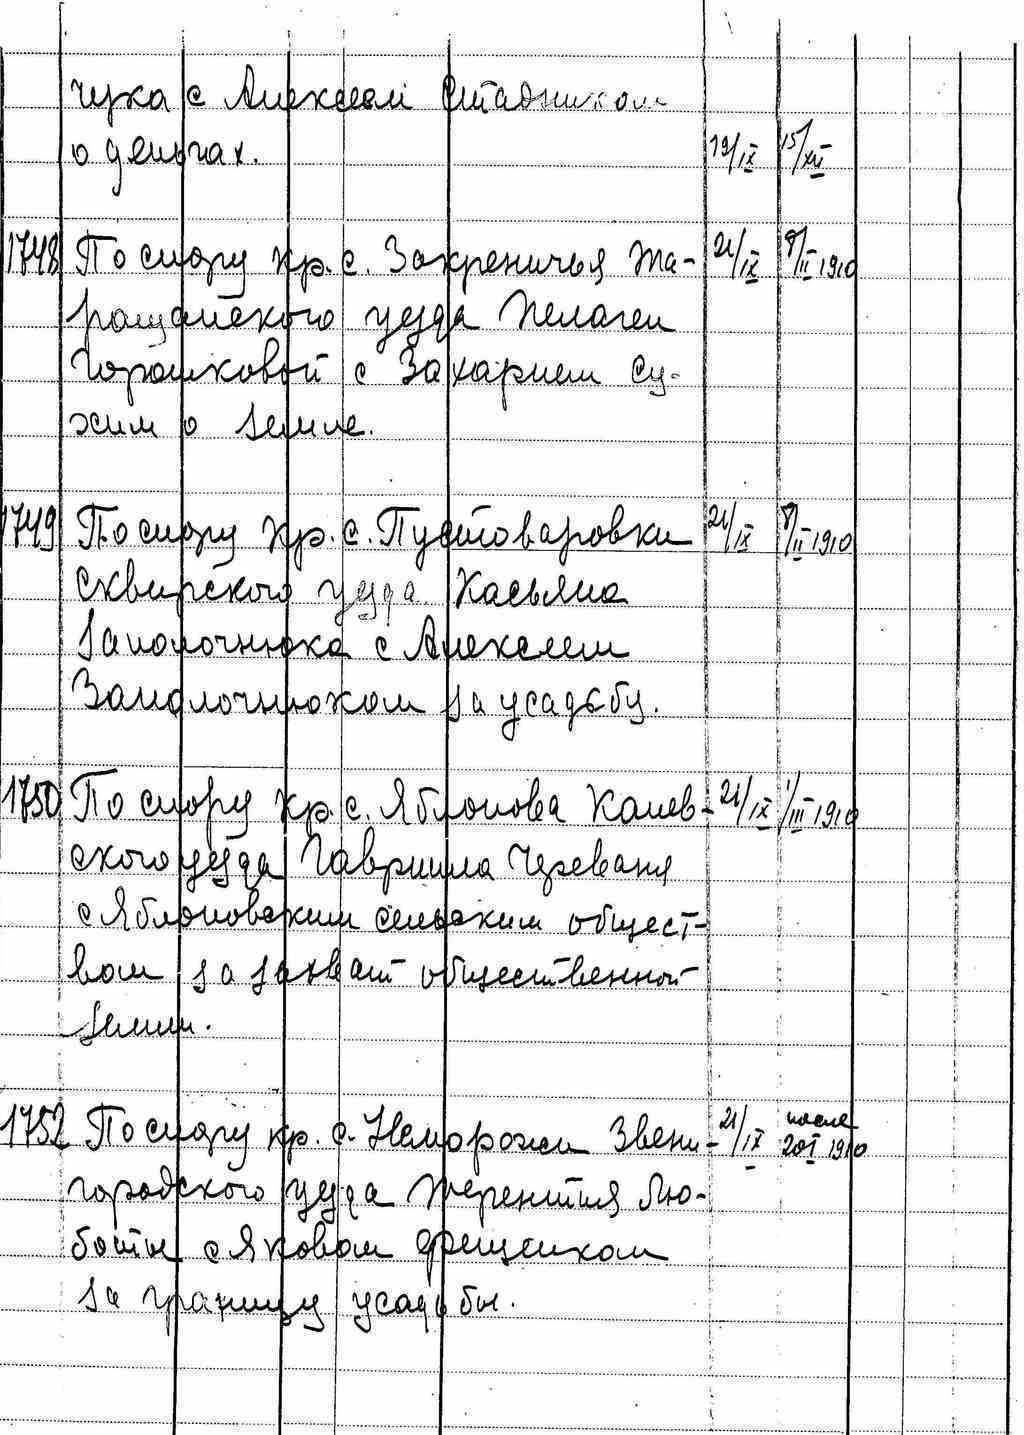 чука с Алексеем Стадником
о деньгах. 19/IX 15/XII
1748 По спору кр. с. Закреничья Та- 21/IX 8/II 1910
ращанского уезда Пелагеи
Горошковой с Захарием Су-
хим о земле.
1749 По спору кр. с. Пустоваровки 21/IX 8/II 1910
Сквирского уезда Касьяна
Заполочнюка с Алексеем
Заполочнюком за усадьбу.
1750 По спору кр. с. Яблонова Канев- 21/IX 1/III 1910
ского уезда Гавриила Череваня
с Яблоновским сельским общест-
вом за захват общественной
земли.
1752 По спору кр. с. Неморожи Звени- 21/IX после 20/I 1910
городского уезда Терентия Лю-
боты с Яковом
за границу усадьбы.